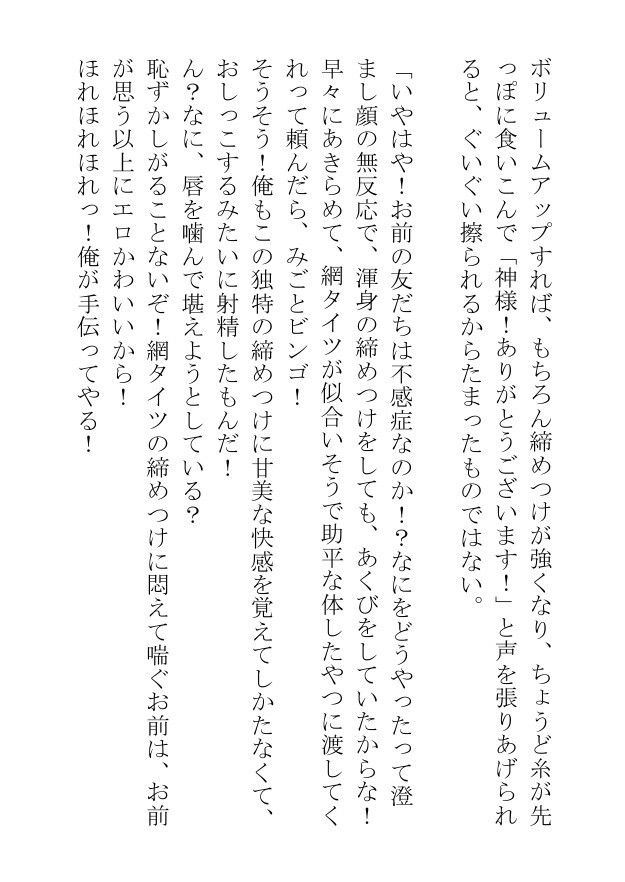 ボリュームアップすれば、もちろん締めつけが強くなり、ちょうど糸が先
っぽに食いこんで「神様！ありがとうございます！」と声を張りあげられ
ると、ぐいぐい擦られるからたまったものではない。
「いやはや！お前の友だちは不感症なのか！？なにをどうやったって澄
まし顔の無反応で、渾身の締めつけをしても、あくびをしていたからな！
早々にあきらめて、網タイツが似合いそうで助平な体したやつに渡してく
れって頼んだら、みごとビンゴ！
そうそう！俺もこの独特の締めつけに甘美な快感を覚えてしかたなくて、
おしっこするみたいに射精したもんだ！
ん？なに、唇を噛んで堪えようとしている？
恥ずかしがることないぞ！網タイツの締めつけに悶えて喘ぐお前は、お前
が思う以上にエロかわいいから！
ほれほれほれっ！俺が手伝ってやる！